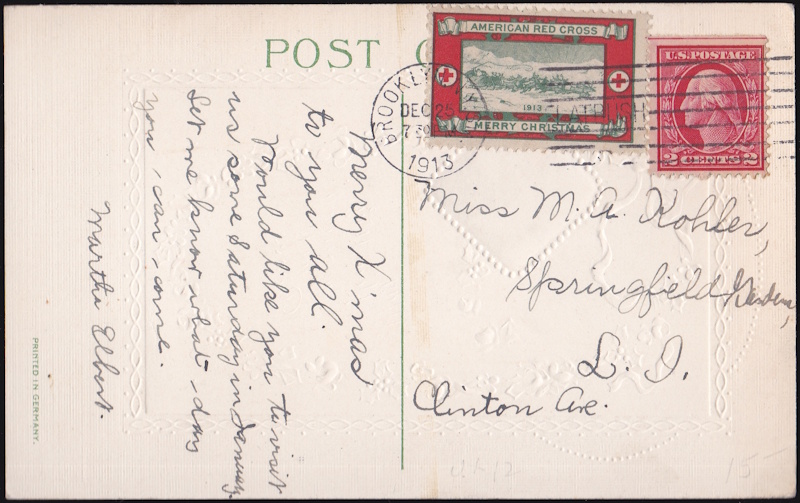 POST C
AMERICAN RED CROSS
1913
MERRY CHRISTMAS
U.S. POSTAGE
2 CENTS 2
BROOKLYN
DEC 25
7
1913
FLATBUSH
Merry X'mas
to you all.
Would like you to visit
us some Saturday in January.
Let me know what day
you can come.
Martha Elbert.
Miss M. A. Kohler,
Springfield Gardens,
L. I.
Clinton Ave.
PRINTED IN GERMANY.
15